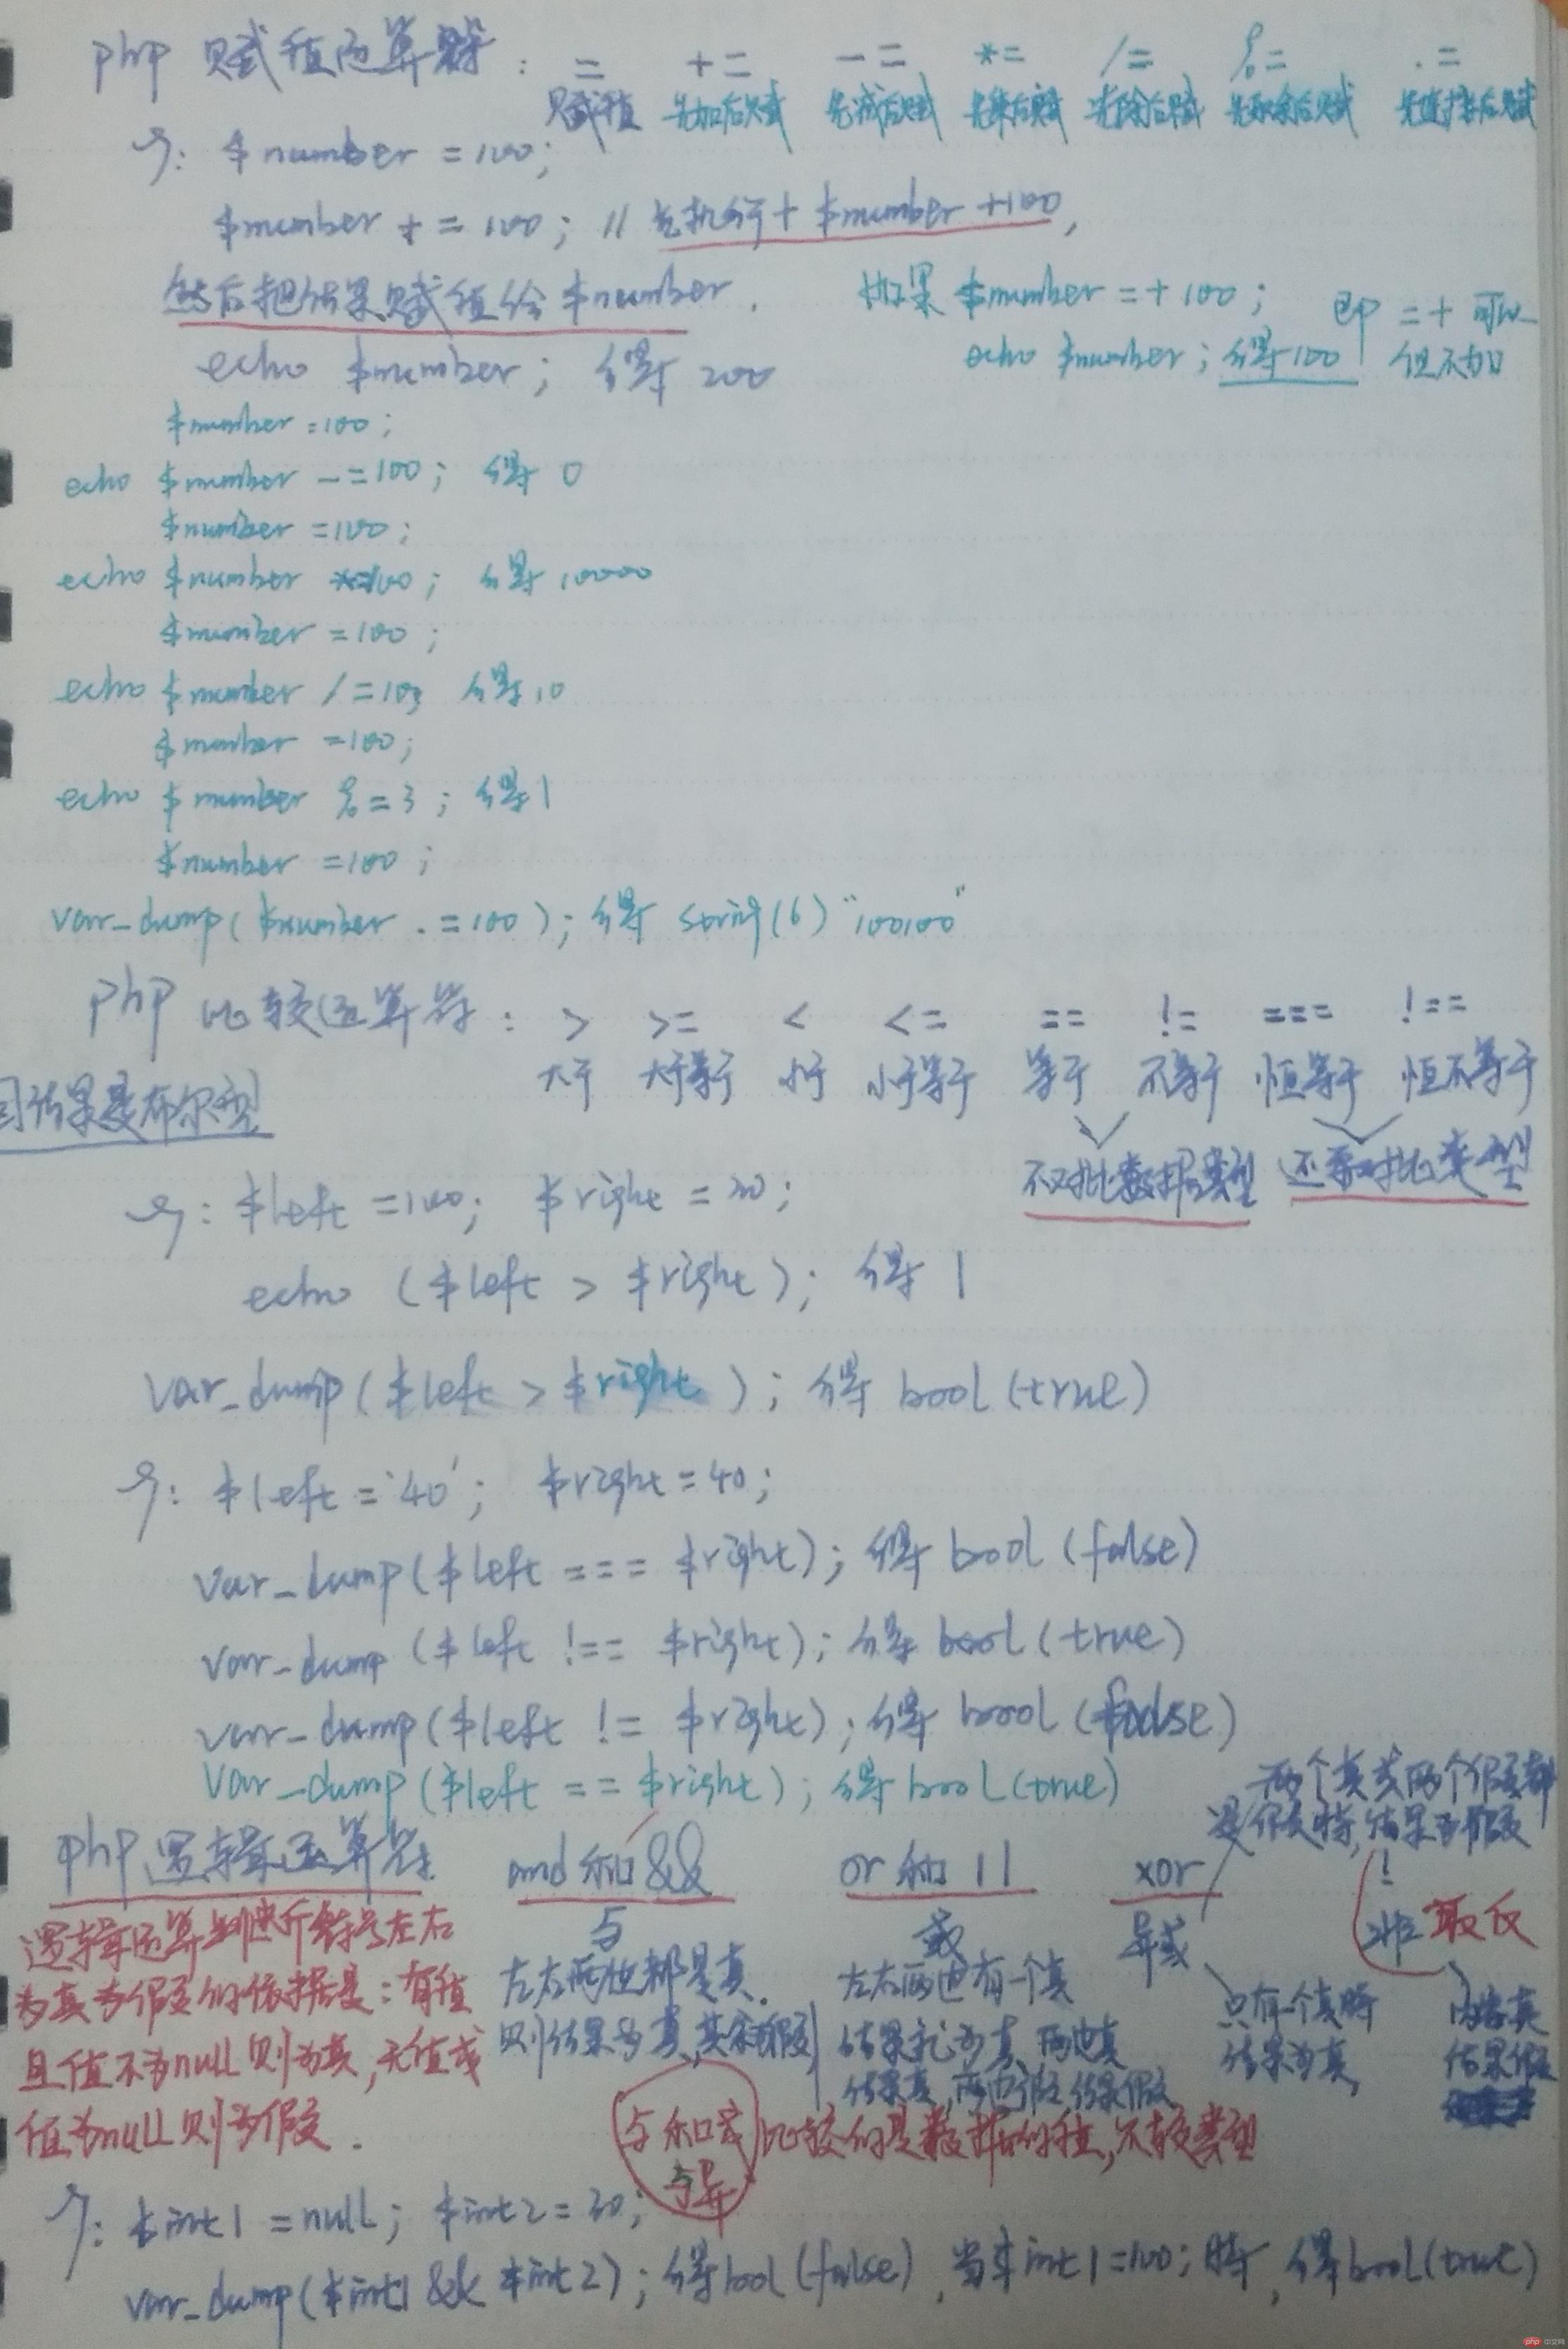 php 赋值运算符 : = += -= *= /= %= .=
赋值 先加后赋 先减后赋 先乘后赋 先除后赋 先取余后赋 先连接后赋
例: $number = 100;
$number += 100; // 先执行+ $number +100,
然后把结果赋值给 $number.
如果 $number =+ 100; 即 =+ 可以
echo $number; 得 200
echo $number; 得100 但不加
$number = 100;
echo $number -= 100; 得 0
$number = 100;
echo $number *= 100; 得 10000
$number = 100;
echo $number /= 10; 得 10
$number = 100;
echo $number %= 3; 得 1
$number = 100;
var_dump( $number .= 100 ); 得 string(6) "100100"
php 比较运算符 : > >= < <= == != === !==
大于 大于等于 小于 小于等于 等于 不等于 恒等于 恒不等于
结果是布尔型
不对比数据类型 还要对比类型
例: $left = 100; $right = 20;
echo ($left > $right); 得 1
var_dump($left > $right); 得 bool(true)
例: $left = '40'; $right = 40;
var_dump($left === $right); 得 bool(false)
var_dump($left !== $right); 得 bool(true)
var_dump($left != $right); 得 bool(false)
var_dump($left == $right); 得 bool(true)
两个真或两个假都
是假时, 结果为假
php 逻辑运算符 and 和 && or 和 || xor !
与 或 异或 非 取反
逻辑运算判断符号左右
为真为假的依据是: 有值
且值不为null则为真, 无值或
值为null则为假.
左右两边都是真.
则结果为真, 其余为假
左右两边有一个真
结果就为真, 两边真
结果真, 两边假结果假
只有一个真时
结果为真,
内容真
结果假
与和或 比较的是数据的值, 不较类型
与异
例: $int1 = null; $int2 = 30;
var_dump($int1 && $int2); 得 bool(false), 当 $int1 = 100; 时, 得 bool(true)